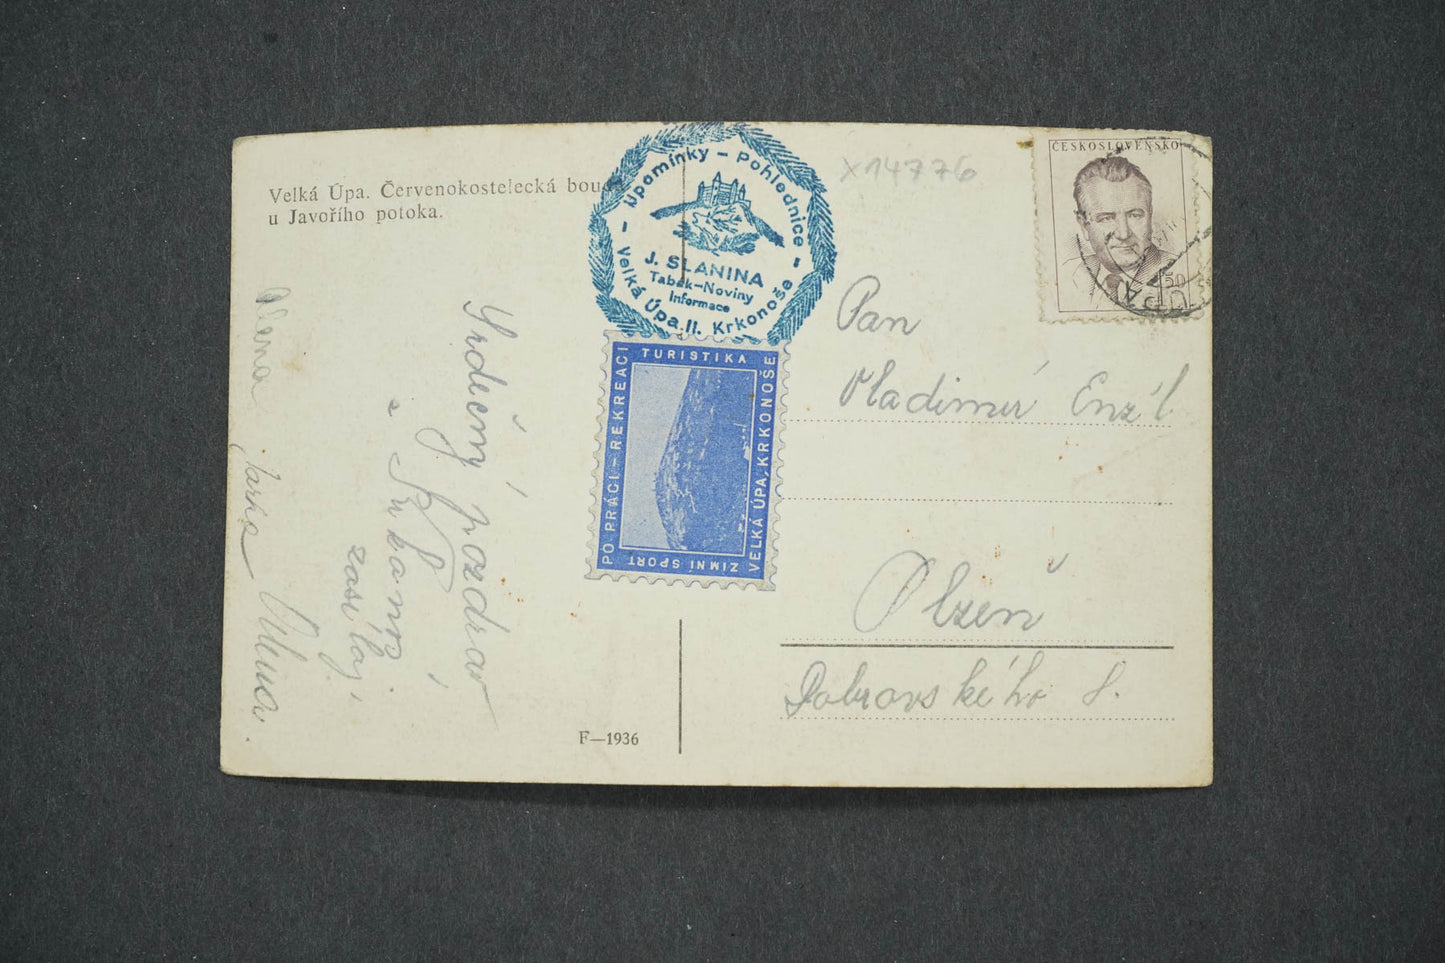 Velká Úpa. Červenokostelecká bouda
u Javořího potoka.
Upomínky – Pohlednice
J. SLANINA
Tabák–Noviny
Informace
Velká Úpa II. Krkonoše
X14776
ČESKOSLOVENSKO
1'50
Srdečný pozdrav
z
zasílají
Jarka
PO PRÁCI – REKREACI
TURISTIKA
VELKÁ ÚPA, KRKONOŠE
ZIMNÍ SPORT
Pan
Vladimír Enzl
Plzeň
Dobrovského 8.
F—1936